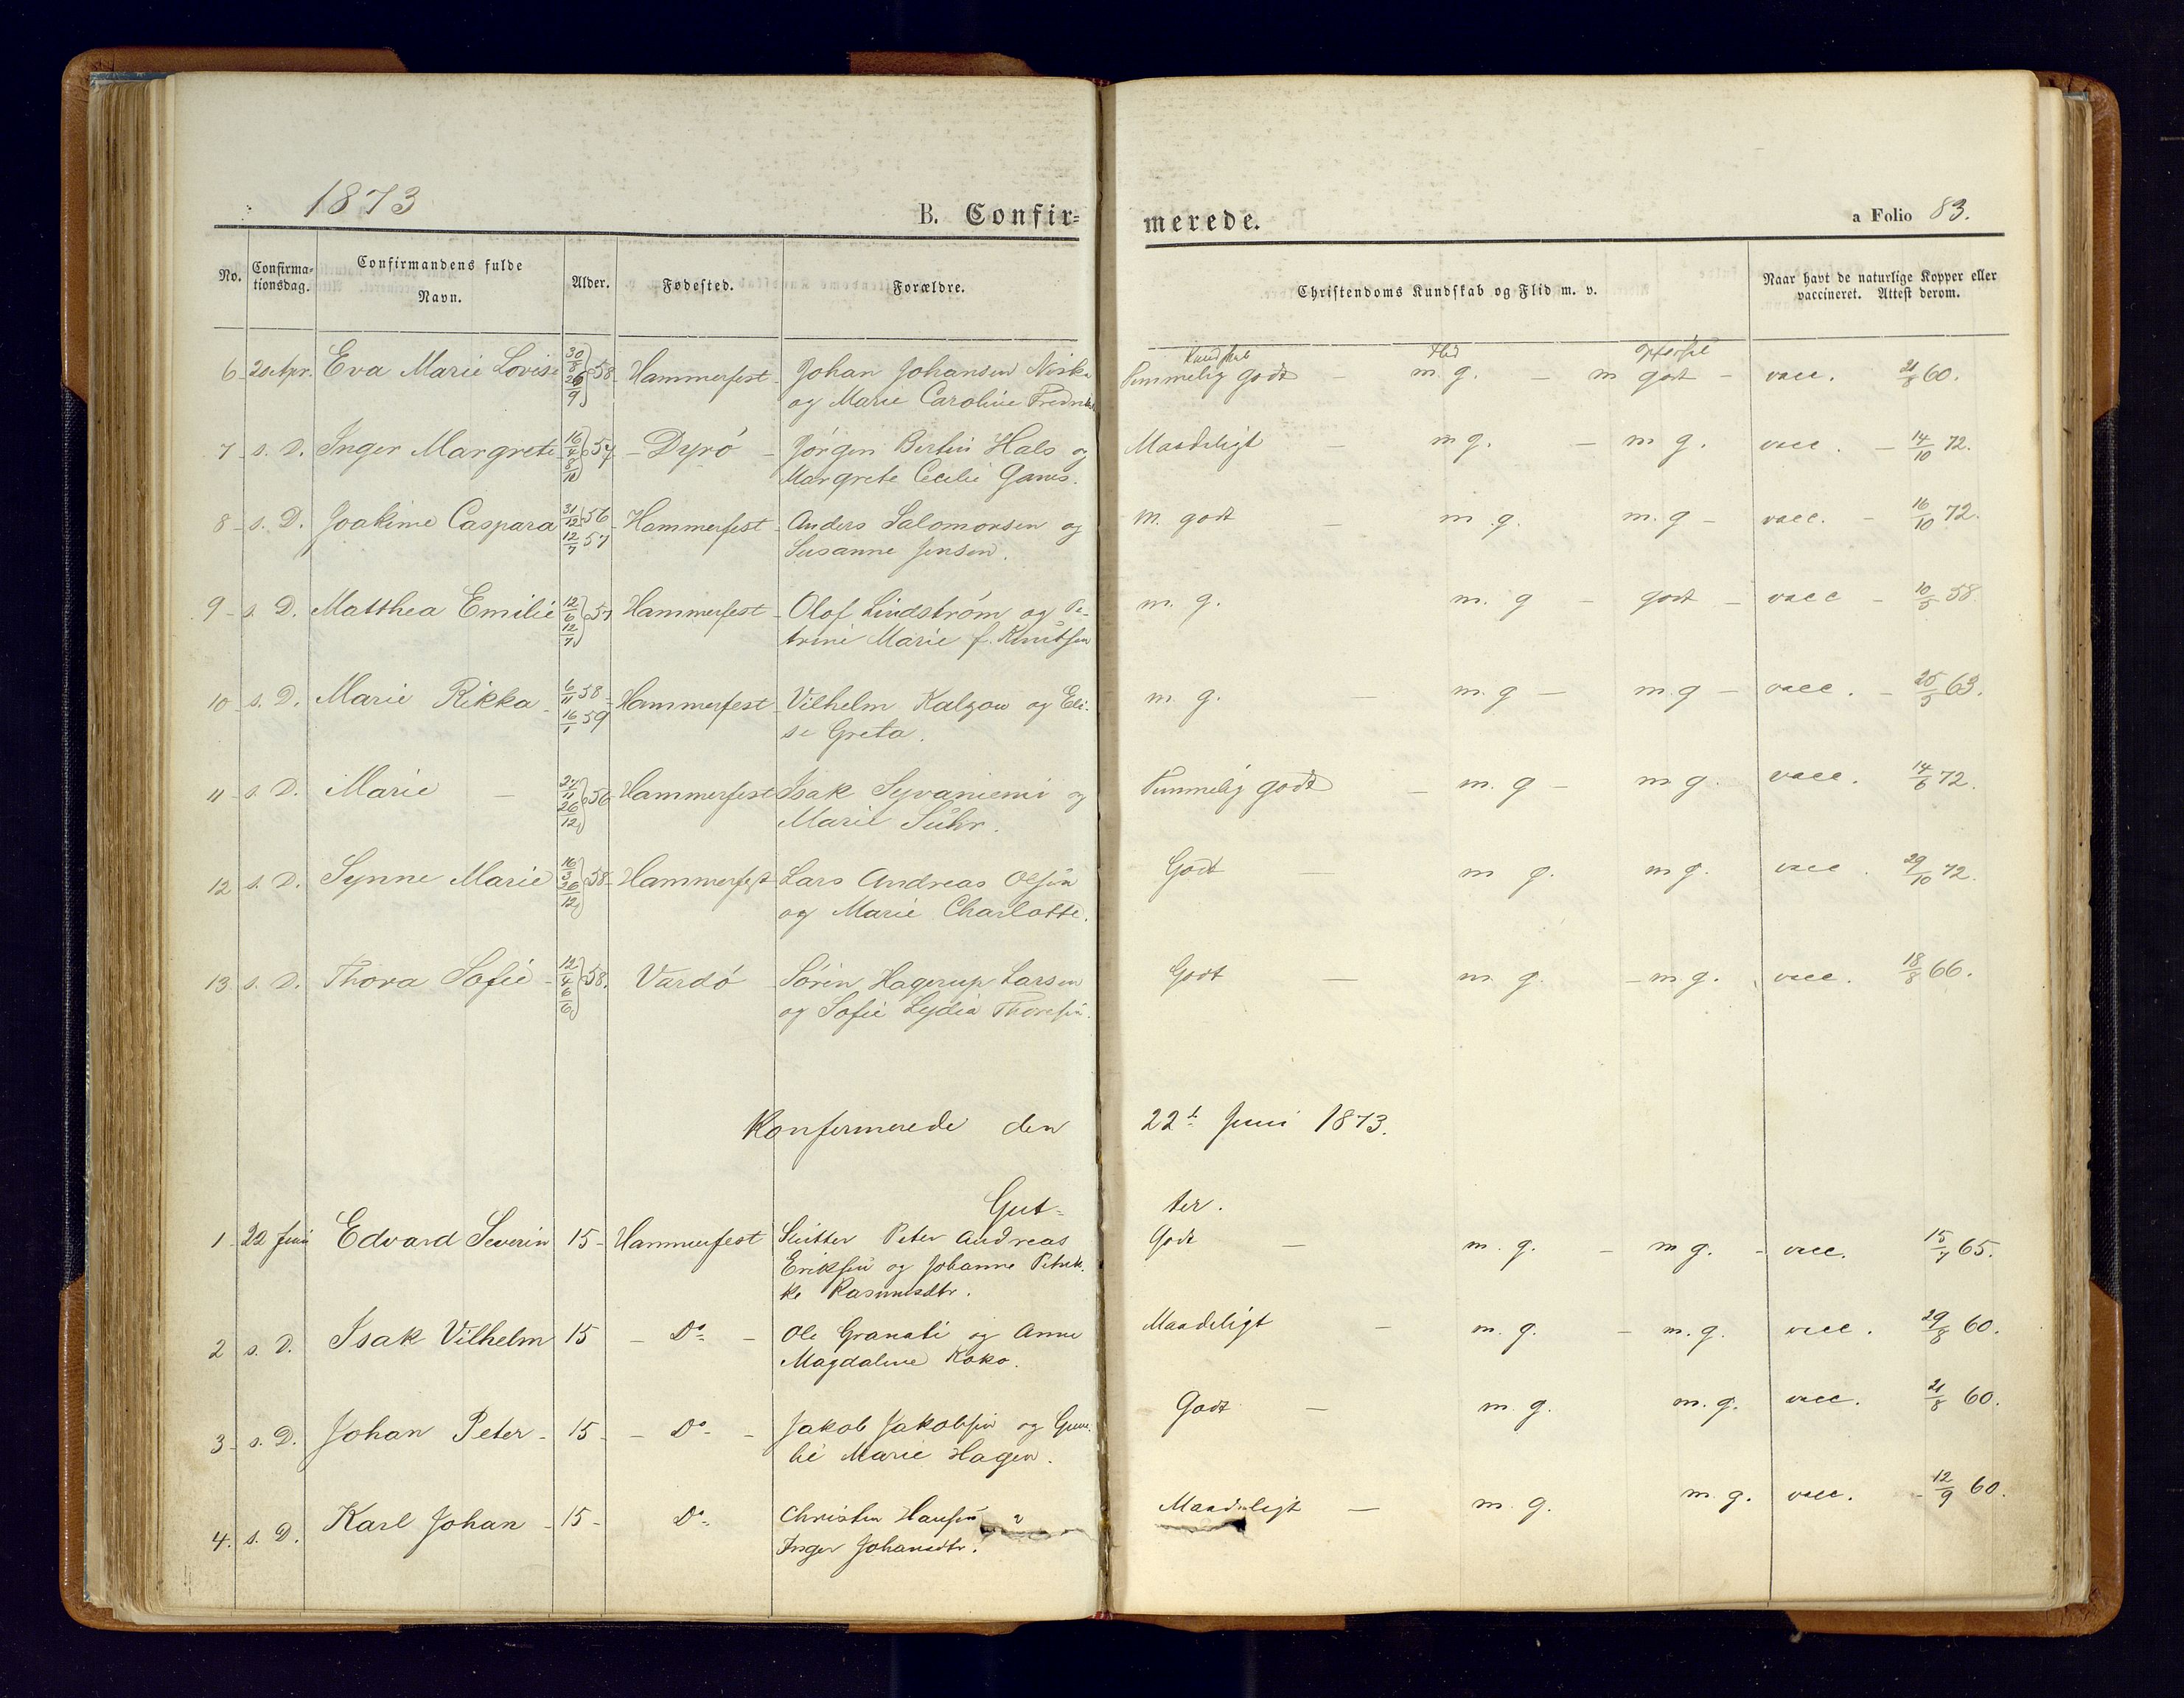 1873
B. Confir=
merede.
a Folio 83.
No.
Confirma=
tionsdag.
Confirmandens fulde
Navn.
Alder.
Fødested.
Forældre.
Christendoms Kundskab og Flid m. v.
Naar havt de naturlige Kopper eller
vaccineret. Attest derom.
Kundskab Flid Opførsel
6 - 20 Apr. Eva Marie Lovise 30/8 26/9 58 - Hammerfest - Johan Johansen Niska Temmelig godt - m. g. - m godt - vacc. 21/8 60.
og Marie Caroline
7 - s. D. Inger Margrete 16/4 8/10 57 - Dyrö - Jørgen Bertin Hals og Maadeligt - m g. - m g. vacc. - 14/10 72.
Margrete Cecilie
8 - s. D. Joakime Caspara 31/12 56 12/7 57 - Hammerfest - Anders Salomonsen og M. godt - m. g. m. g - vacc. - 16/10 72.
Susanne Jensen.
9 - s. D. Matthea Emilie 12/6 12/7 57 Hammerfest - Olof Lindström og Pe- m. g. m. g - godt - vacc - 10/5 58.
trine Marie f. Knutsen
10 - s. D. Marie Rikka - 6/11 58 - 16/1 59 Hammerfest - Vilhelm Kalzow og Eli- m. g. - m. g - m. g - vacc. - 25/5 63.
se Greta.
11 - s. D. Marie - 27/11 26/12 56 Hammerfest Isak Syvaniemi og Temmelig godt - m. g - m g. vacc. 14/6 72.
Maril Suhr.
12 s. D. Synne Marie 16/3 26/12 58 - Hammerfest Lars Andreas Olsen Godt - m g. m g. vacc. 29/10 72.
og Marie Charlotte.
13. s. D. Thora Sofie - 12/4 6/6 58. Vardö - Sören Hagerup Larsen Godt - m. g. - m g. vacc. 18/8 66.
og Sofie Lydia Thoresen.
Konfirmerede den 22de Juni 1873.
Gut- ter.
1 - 22 Juni Edvard Severin 15 - Hammerfest Peter Andreas Godt - m. g. - m g. - vacc. 15/7 65.
Eriksen og Johanne Petrik-
ke Rasmusdtr.
2 s. D. Isak Vilhelm 15 - Do - Ole Granati og Anne Maadeligt - m. g. - m. g. vacc. 29/8 60.
Magdalene Koko.
3 - s. D. Johan Peter - 15 - - Do - Jakob Jakobsen og Gun- Godt - m. g. m. g. vacc. 21/8 60.
Marie Hagen.
4. s. D. Karl Johan - 15 - Do Christen Hansen Maadeligt - m. g. m. g. vacc. - 12/9 60.
Inger Johansdtr.